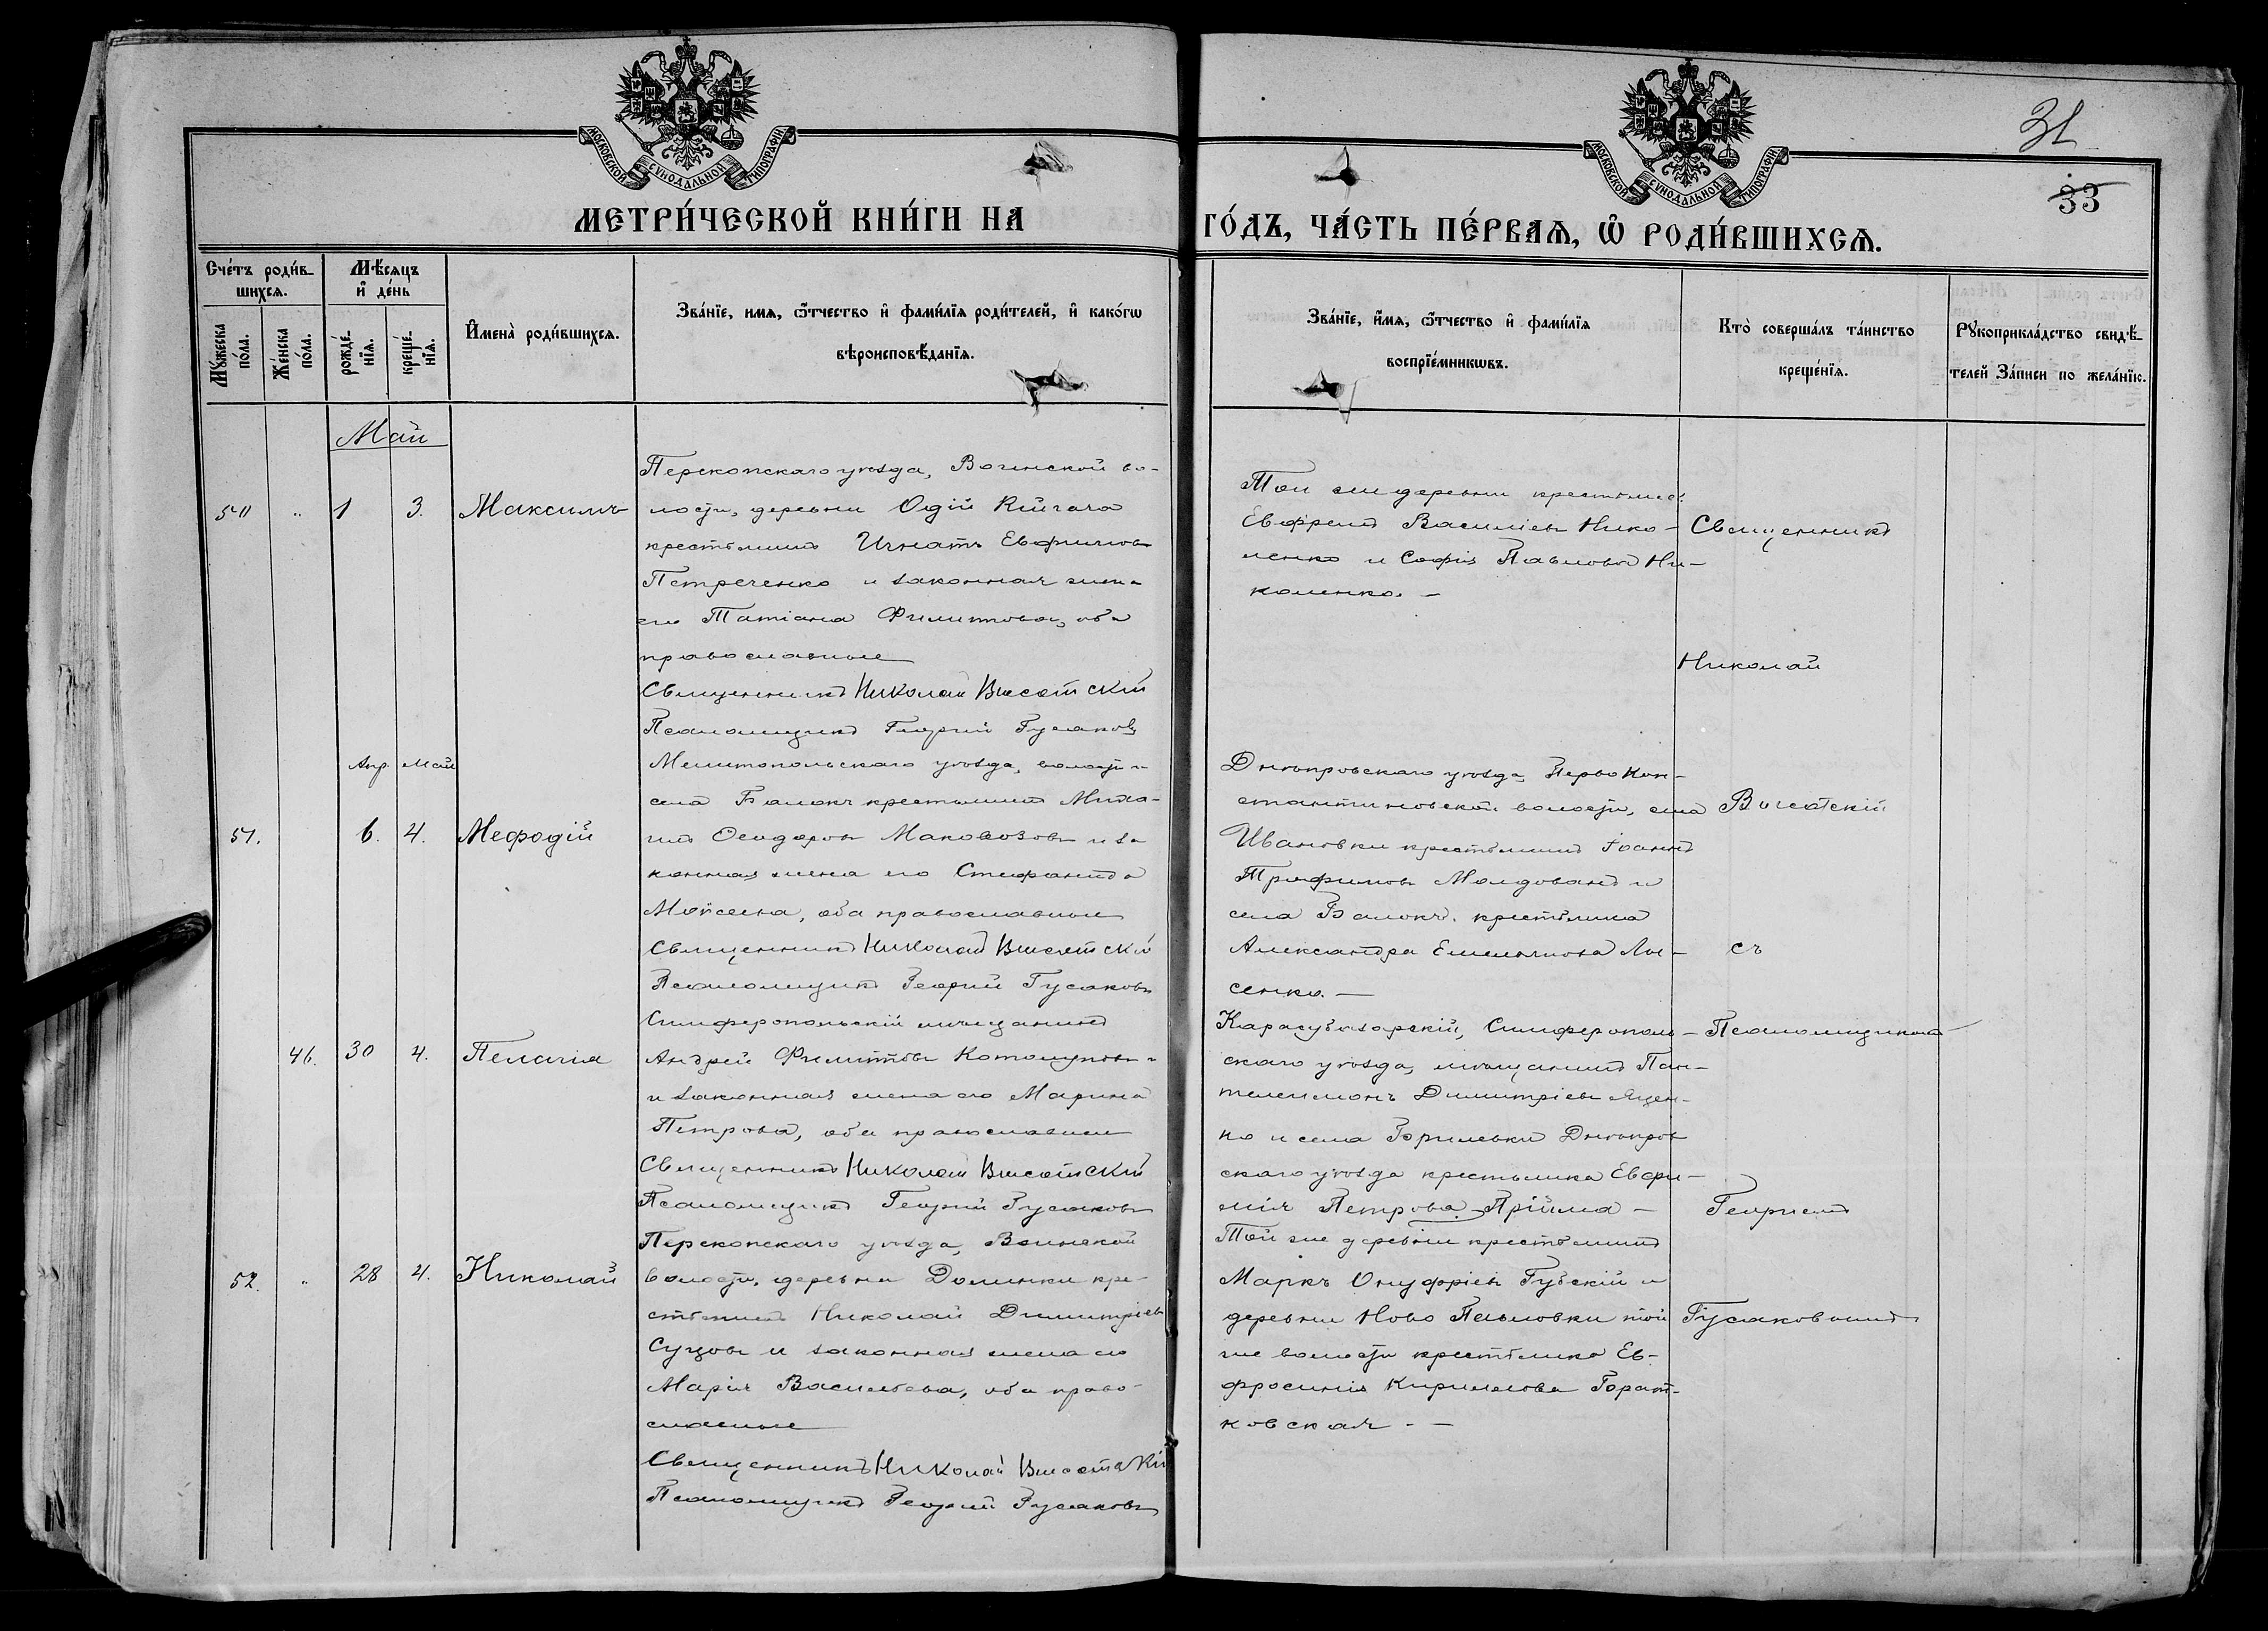 31
33
МОСКОВСКОЙ СѴНОДАЛЬНОЙ ТИПОГРАФІИ
МОСКОВСКОЙ СѴНОДАЛЬНОЙ ТИПОГРАФІИ
МЕТРИ́ЧЕСКОЙ КНИ́ГИ НА ГО́ДЪ, ЧА́СТЬ ПЕ́РВАѦ, Ѽ РОДИ́ВШИХСѦ.
Сче́тъ роди́в-
шихсѧ.
Мꙋ́жеска
по́ла.
Же́нска
по́ла.
Мѣ́сѧцъ
и҆ де́нь
рожде́-
нїѧ.
креще́-
нїѧ.
И҆мена̀ роди́вшихсѧ.
Зва́нїе, имѧ, ѻ҆́тчество и҆ фами́лїѧ роди́телей, и҆ како́гѡ
вѣроисповѣ́данїѧ.
Зва́нїе, и҆́мѧ, ѻ҆́тчество и҆ фами́лїѧ
воспрїе́мникѡвъ.
Кто̀ соверша́лъ та́инство
креще́нїѧ.
Рꙋкоприкла́дство свидѣ́-
телей За́писи по жела́нїю.
Май
50 " 1 3. Максимъ
Перекопскаго уѣзда, Воинской во-
лости, деревни Одій Кийгача
крестьянинъ Игнатъ Евфимовъ
Петреченко и законная жена
его Татіана Филиппова, оба
православные
Священникъ Николай Высотскій
Псаломщикъ Георгій Гусаковъ
Той же деревни крестьяне:
Евфремъ Василіевъ Нико-
ленко и Софія Павлова Ни-
коленко. —
Апр. Май
51. 6. 4. Меѳодій
Мелитопольскаго уѣзда, волости и
села Балокъ крестьянинъ Миха-
илъ Осидоровъ Маковозовъ и за
конная жена его Стефанида
Мойсеева, оба православные
Священникъ Николай Высотскій
Псаломщикъ Георгій Гусаковъ
Днѣпровскаго уѣзда, Перво Кон-
стантиновской волости, села
Ивановки крестьянинъ Іоаннъ
Трифимовъ Молдованъ и
села Балокъ крестьянка
Александра Емельянова Лы-
сенко. —
46. 30 4. Пелагія
Симферопольскій мѣщанинъ
Андрей Филипповъ
и законная жена его Марина
Петрова, оба православные
Священникъ Николай Высотскій
Псаломщикъ Георгій Гусаковъ
Карасубазарскій, Симферополь-
скаго уѣзда, мѣщанинъ Пан-
телеимонъ Димитріевъ Яцен-
ко и села Бѣрилевки Днѣпров
скаго уѣзда крестьянка Евфи-
мія Петрова Прійма —
52. " 28 4. Николай
Перекопскаго уѣзда, Воинской
волости, деревни Долинки кре-
стьянинъ Николай Димитріевъ
Суцовъ и законная жена его
Марія Васильева, оба право-
славные
Священникъ Николай Высотскій
Псаломщикъ Георгій Гусаковъ
Той же деревни крестьянинъ
Маркъ Онуфріевъ Губскій и
деревни Ново Павловки той
же волости крестьянка Ев-
фросинія Кириллова Горат-
ковская. —
Священникъ
Николай
Высотскій
съ
Псаломщикомъ
Георгіемъ
Гусаковымъ